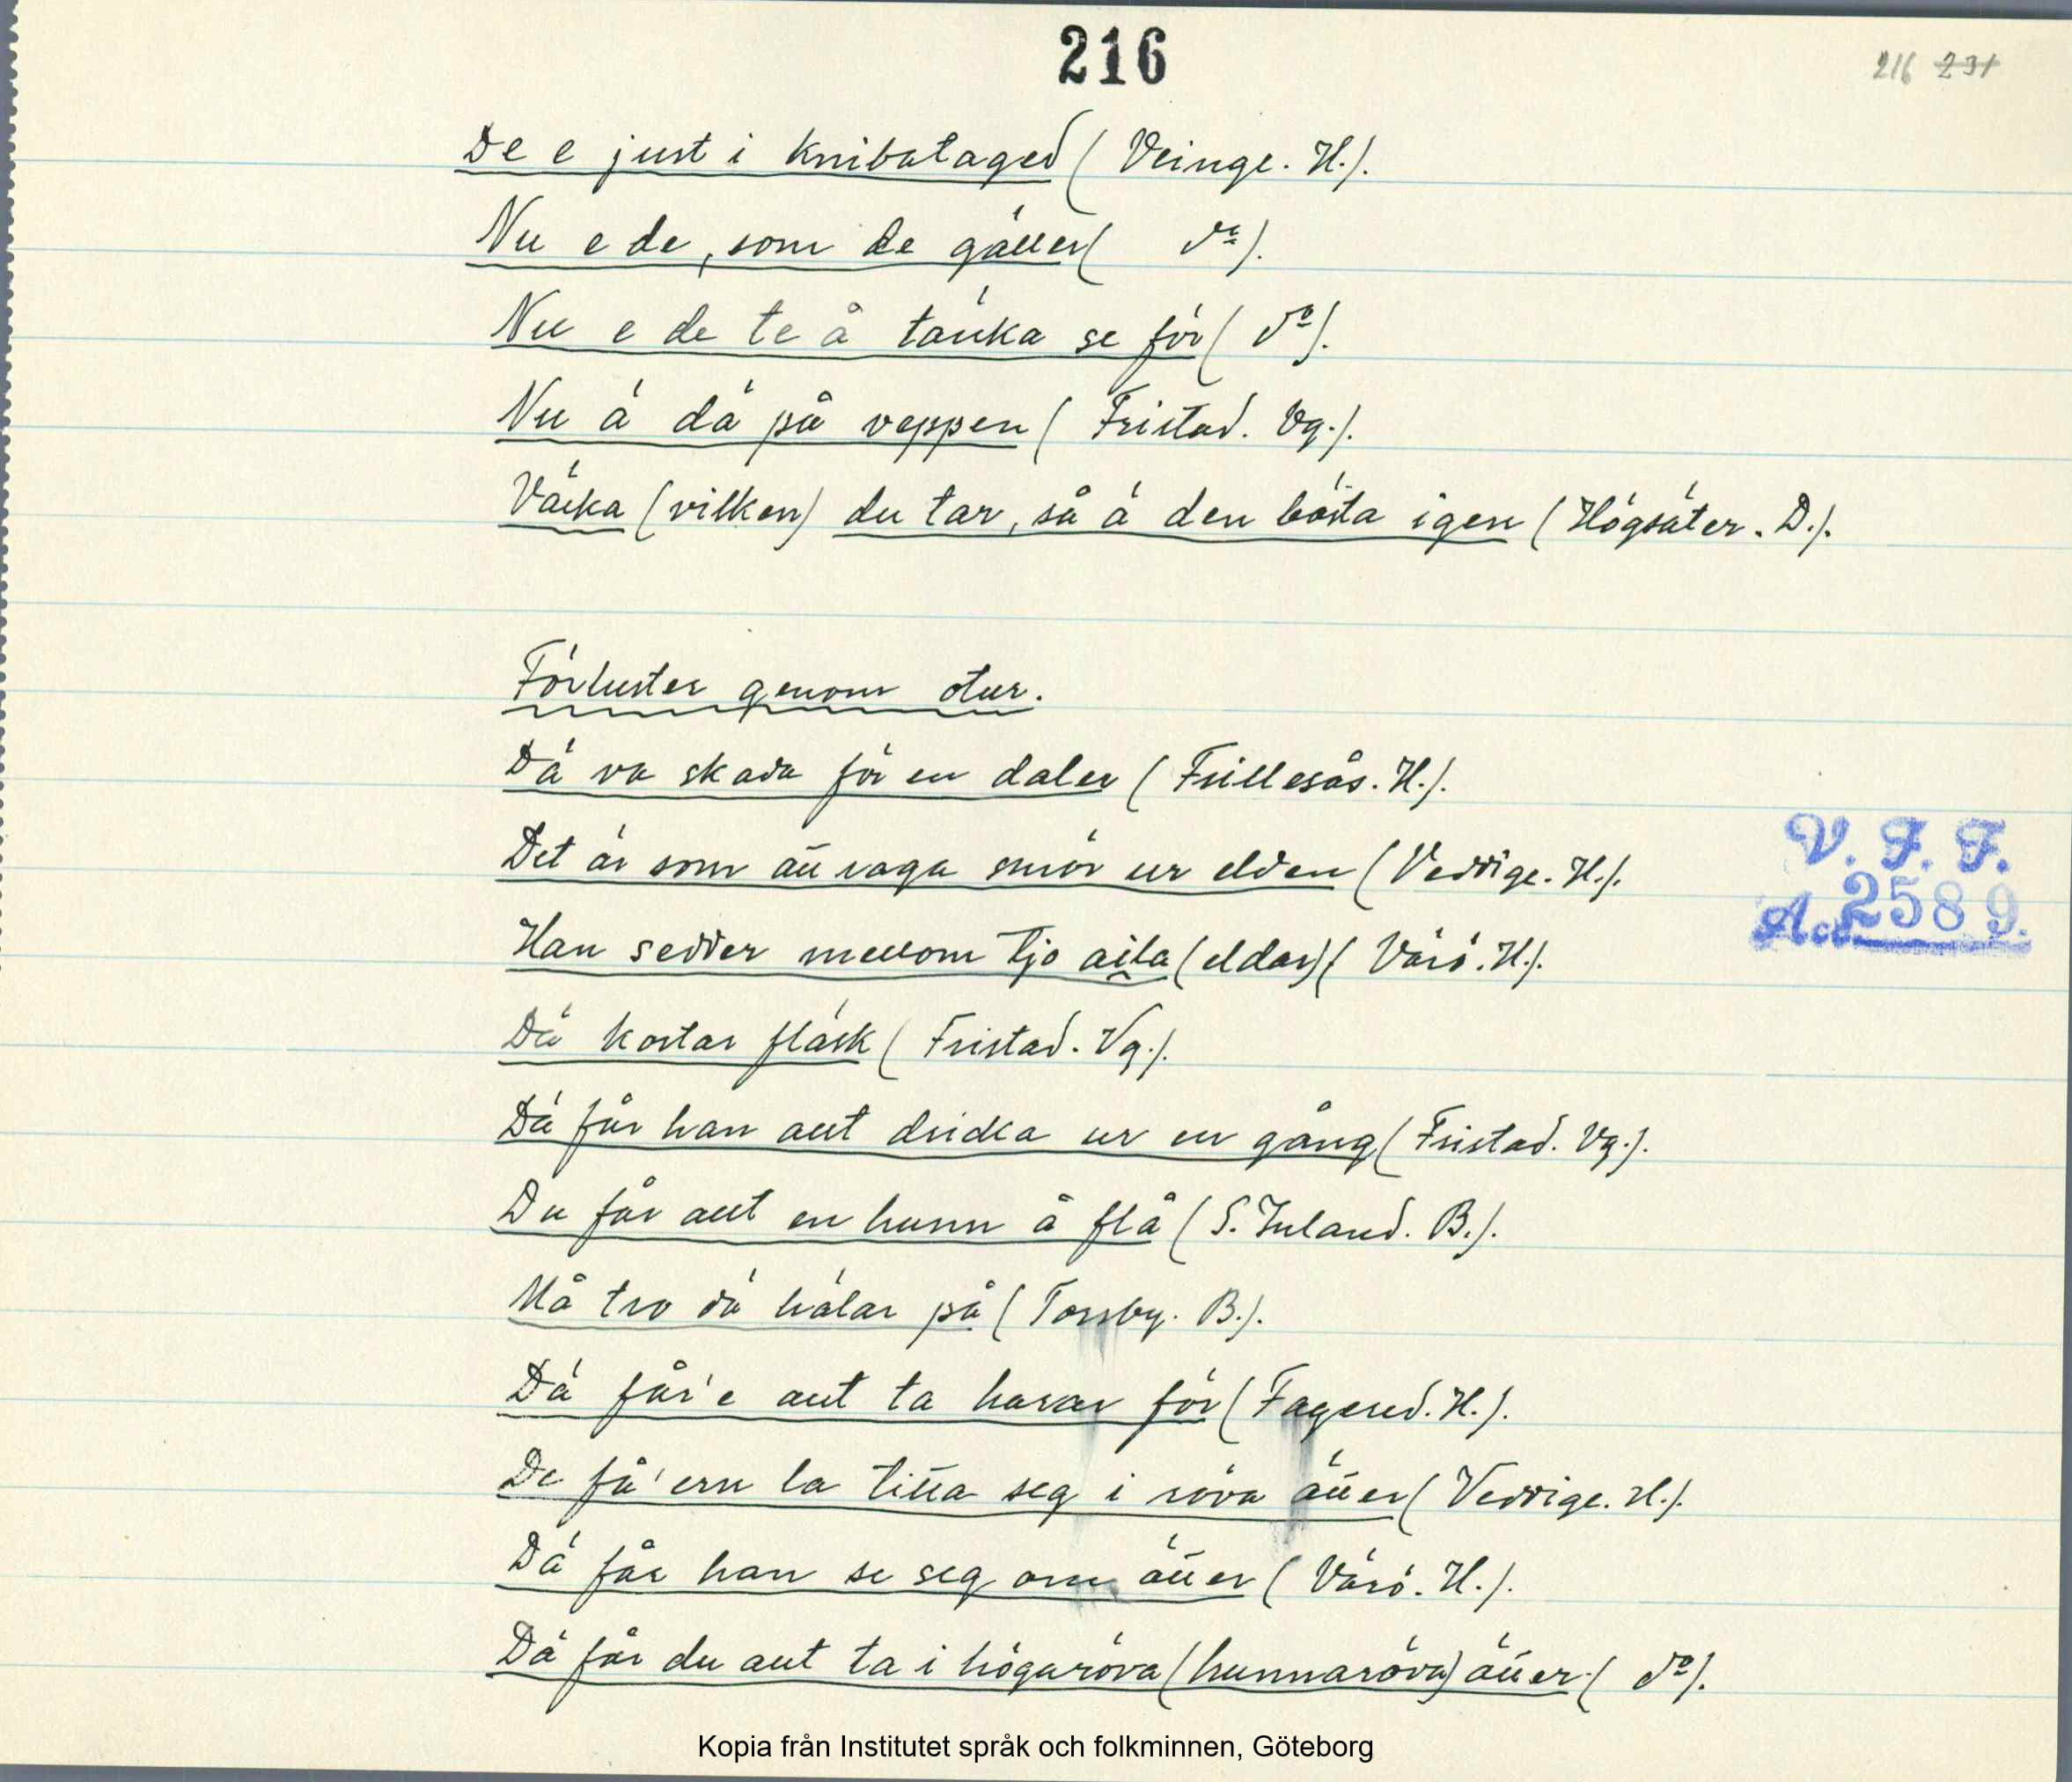 216
216 231
De e just i knibataged (Veinge. H.).
Nu e de, som de gäller ( do).
Nu e de te å tänka se för ( do).
Nu ä dä på veppen (Fristad. Vg.).
Väcka (vilken) du tar, så ä den bästa igen (Högsäter. D.).
Förluster genom otur.
Dä va skada för en daler (Frillesås. H.).
Det är som att raga smör ur elden (Veddige. H.).
Han sedder mellom tjo aila (eldar) (Värö. H.).
Dä kostar fläsk (Fristad. Vg.).
Dä får han allt dricka ur en gång (Fristad. Vg.).
Du får allt en hunn å flå (S. Inland. B.).
Må tro dä hälar på (Torsby. B.).
Dä får'e allt ta harar för (Fagered. H.).
De få'ern la titta seg i röva ätter (Veddige. H.).
Dä får han se seg om ätter (Värö. H.).
Dä får du allt ta i högaröva (hunnaröva) ätter ( do).
V. F. F.
Acc. 2589.
Kopia från Institutet språk och folkminnen, Göteborg